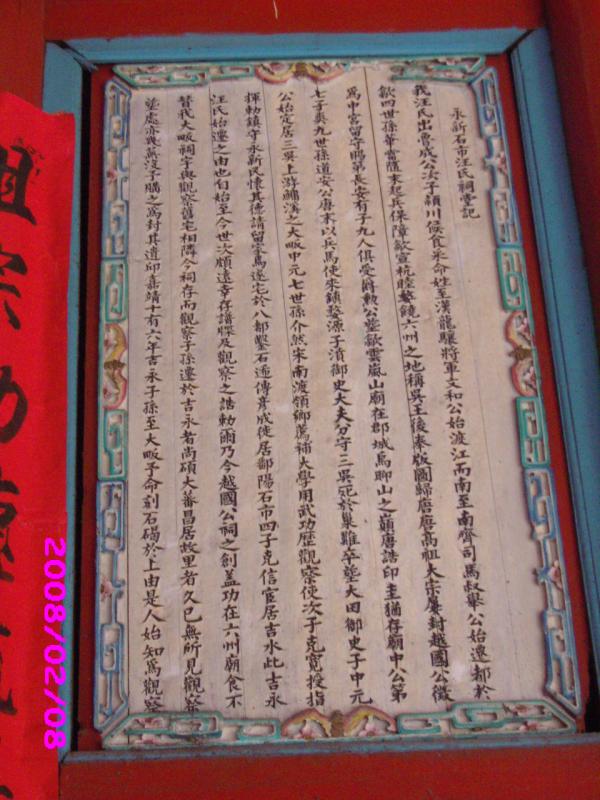 永新石市汪氏祠堂記
我汪氏出魯成公次子穎川侯食采命姓至漢龍驤將軍文和公始渡江而南至南齊司馬叔舉公始遷都於
歙四世孫華當隋末起兵保障歙宣杭睦婺饒六州之地稱吳王後奉版圖歸唐唐高祖太宗屢封越國公徵
為中宮留守賜第長安有子九人俱受爵勳公塋歙雲嵐山廟在郡城烏聊山之巔唐誥印圭猶存廟中公第
七子爽九世孫道安公唐末以兵馬使來鎮婺源子濆御史大夫分守三吳死於巢難卒塟大田御史子中元
公始定居三吳上游鱅溪之大畈中元七世孫介然宋南渡領鄉薦補大學用武功歷觀察使次子克寬授指
揮勅鎮守永新民懷其德請留家焉遂宅於八都鑿石 傳彥成徙居鄱陽石市四子克信宦居吉水此吉永
汪氏始遷之由也自始至今世次頗遠幸存譜牒及觀察之誥勅爾乃今越國公祠之創蓋功在六州廟食不
替我大畈祠宇與觀察舊宅相隣今祠存而觀察子孫遷於吉永者尚碩大蕃昌居故里者久已無所見觀察
塟處亦 蕪沒予購之為封其遺邱嘉靖十有六年吉永子孫至大畈予命刻石碣於上由是人始知為觀察
祖宗功德
2008/02/08